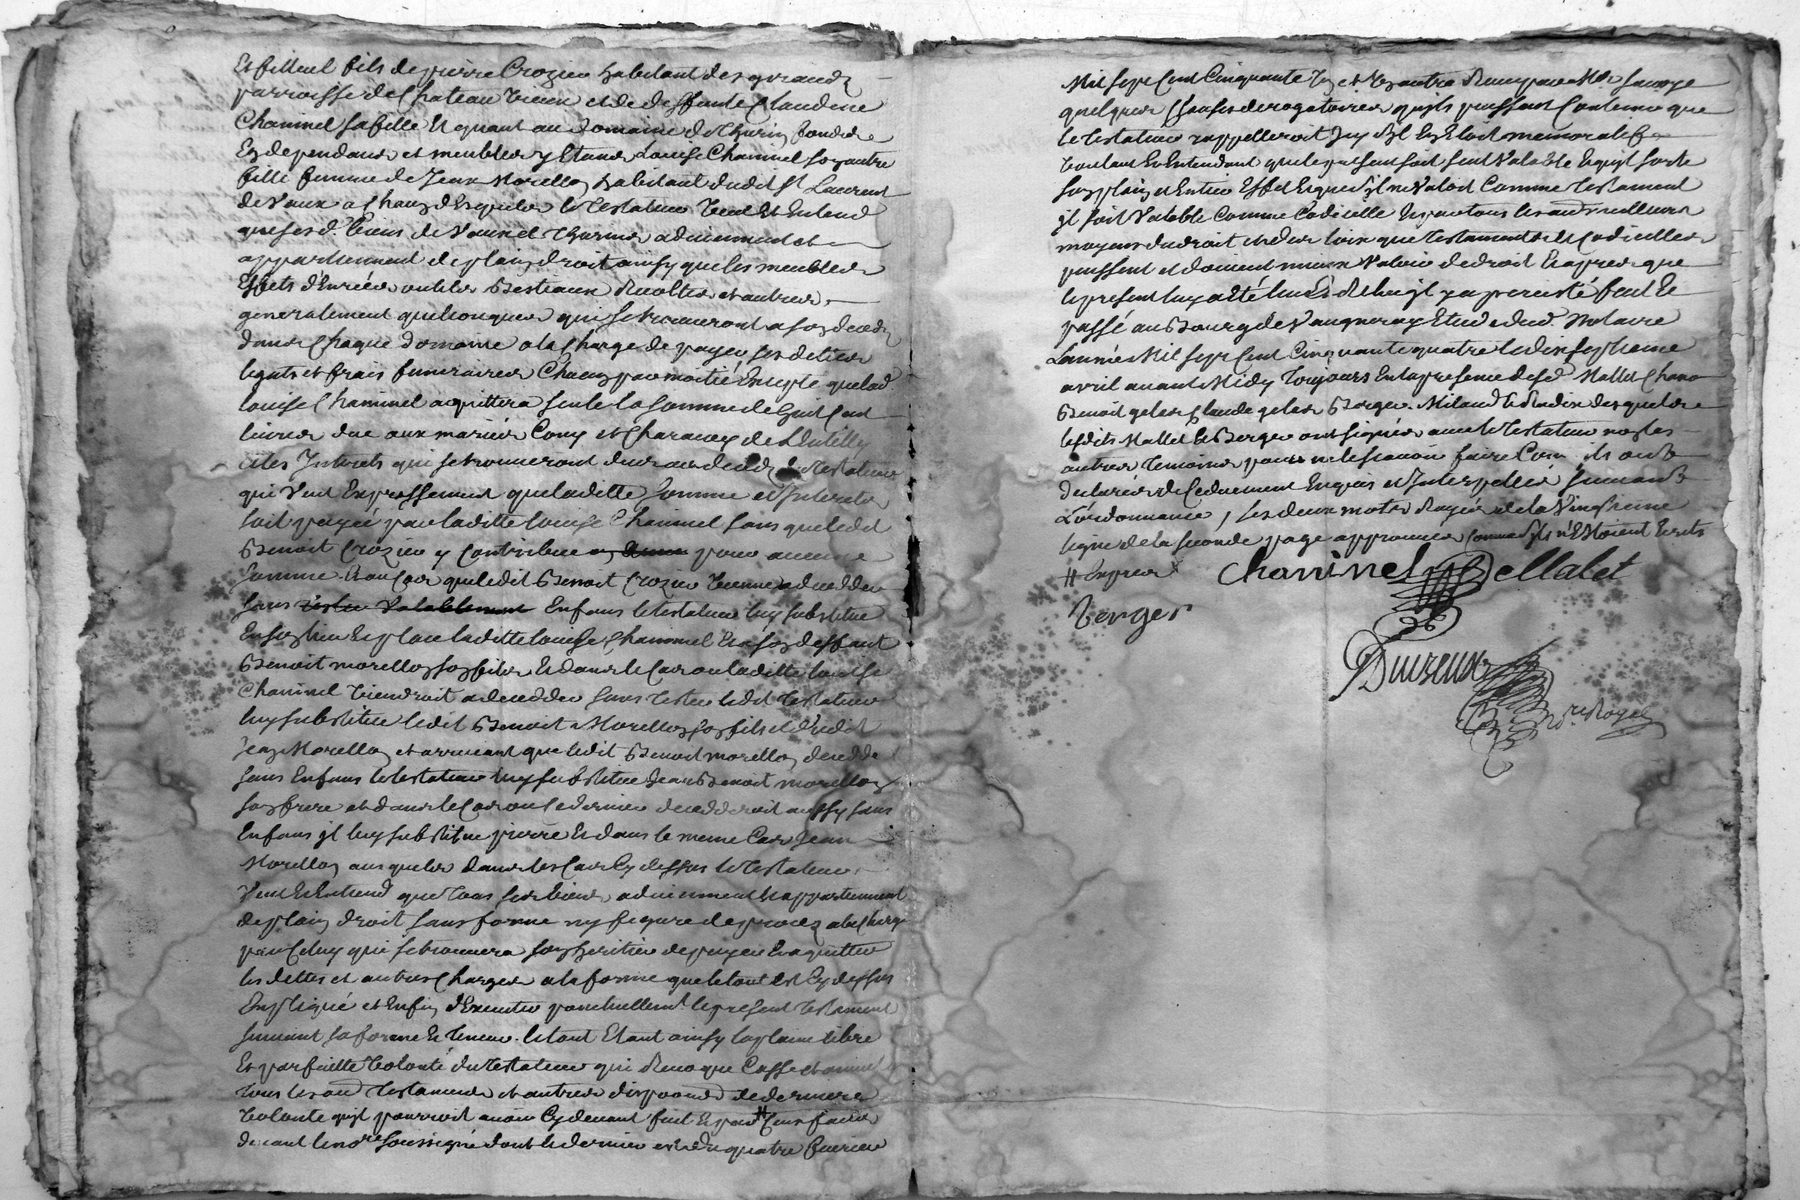 Et filleul fils de pierre Crozier habitant des grands
parroisse de Chateau vieux et de deffunte Claudine
Chaninel sa fille Et quant au domaine de Thurin fonds
En dependans et meubles y Etans Louise Chaninel son autre
fille femme de Jean Morellon habitant dudit St Laurent
de Vaux a Chacun desquels le testateur veut Et Entend
que ses d. biens de Vaux et Thurin adviennent et
appartiennent de plain droit ainsy que les meubles
Effets denrées outils Bestiaux Recoltes et autres
generalement quelconques qui se trouveront a son deceds
dans Chaque domaine a la Charge de payer ses dettes
legats et frais funeraires Chacun par moitié Excepté que lad.
louise Chaninel acquittera seule la somme de huit Cent
livres due aux mariés Cony et Charavay de
et les Interets qui se trouveront dus au deceds du testateur
qui veut Expressement que laditte somme et Interets
soit payée par laditte louise Chaninel sans que ledit
Benoit Crozier y Contribue pour aucune
somme Et au Cas que ledit Benoit Crozier vienne a decedder
sans tester valablement Enfans le testateur luy substitue
En son lieu Et place laditte louise Chaninel Et a son deffaut
Benoit morellon son fils Et dans le Cas ou laditte louise
Chaninel viendroit a decedder sans tester ledit testateur
luy substitue ledit Benoit Morellon son fils et dudit
Jean Morellon et arrivant que ledit Benoit morellon decedde
sans Enfans le testateur luy substitue Jean Benoit morellon
son frere et dans le Cas ou Ce dernier decedderoit aussy sans
Enfans il luy substitue pierre Et dans le meme Cas Jean
Morellon auxquels dans les Cas Cy dessus le testateur
Veut Et Entend que tous ses biens adviennent Et appartiennent
de plain droit sans forme ny figure de procez a la Charge
par Celuy qui se trouvera son heritier de payer Et acquitter
les dettes et autres Charges a la forme que le tout Est Cy dessus
Expliqué et Enfin d'Executer ponctuellemt. le present testament
suivant sa forme Et teneur le tout Etant ainsy la plaine libre
Et parfaitte volonté du testateur qui Revoque Casse et annulle
tous les aud. testamens et autres dispoons. de derniere
volonté qu'il pourroit avoir Cy devant fait Et par # Ceux faits
devant le nore. soussigné dont le dernier est du quatre fevrier
Mil sept Cent Cinquante et autre Receu par Me. Sauvage
quelques Clauses derogatoires qu'ils puissent Contenir que
le testateur rappelleroit Icy s'il En Etoit memoratif
voulant Et Entendant que le present soit seul Valable Et qu'il sorte
son plain et Entier Effet Et que s'il ne Valoit Comme testament
il soit Valable Comme Codicille Et par tous les aud. meilleurs
moyens du droit et des loix que testaments et Codicilles
puissent et doivent mieux Valoir de droit Et apres que
le present luy a Eté lu Et Relu il y a percisté fait Et
passé au Bourg de Vaugneray Etude dud. Notaire
L'année Mil sept Cent Cinquante quatre le dix septieme
avril avant Midy toujours En la presence desd. Mallet Chano
Benoit gelas Claude gelas Berger Milaud le desquels
lesdits Mallet et Berger ont signés avec le testateur non les
autres temoins pour ne le scavoir faire Comme ils ont
declarés de Ce duement Enquis et Interpellés suivant
L'ordonnance, les deux mots Rayés de la Vingtieme
ligne de la seconde page approuvés Comme s'ils n'Etoient Ecrits
# Exprès
Chaninel Mallet
Berger
nore. Royal